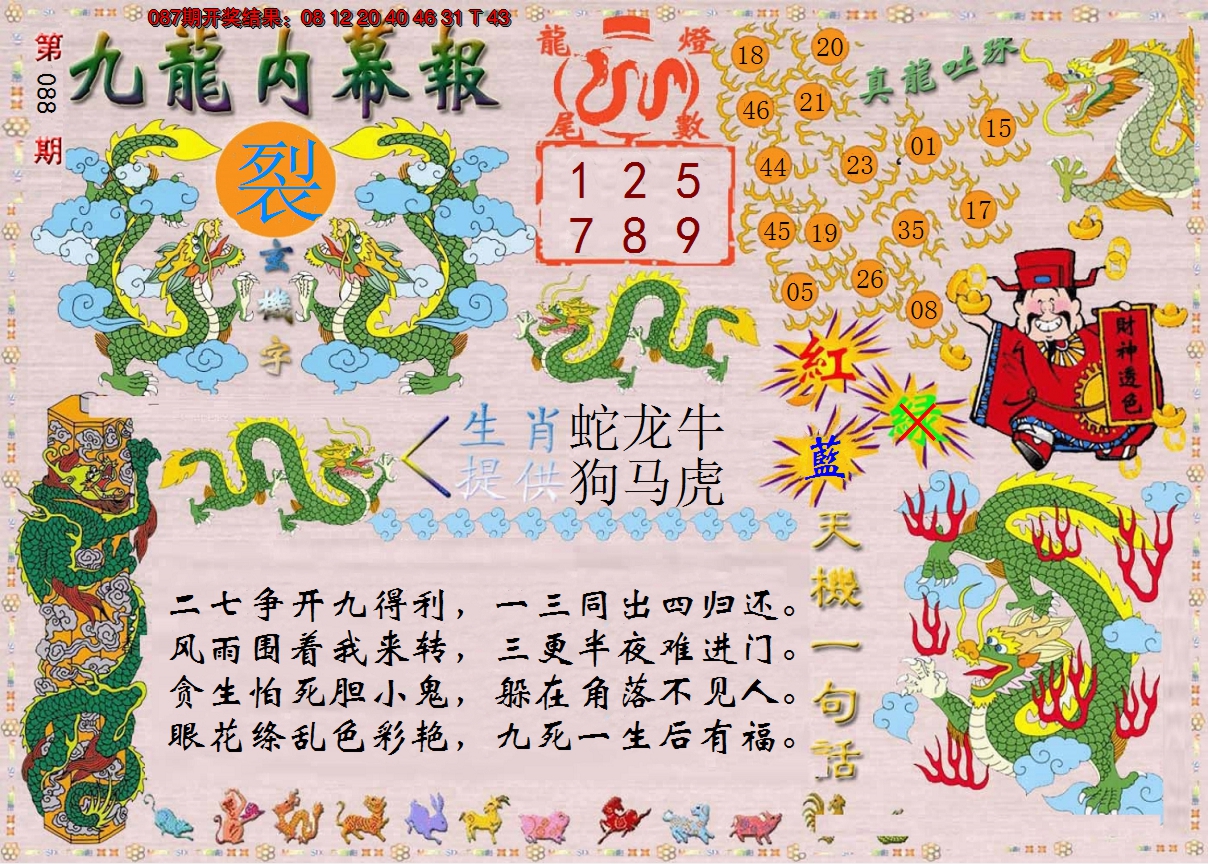 087期开奖结果：08 12 20 40 46 31 T 43
第
088
期
九龍内幕報
裂
玄
機
字
龍
燈
尾
數
1 2 5
7 8 9
真龍吐珠
18
20
46
21
01
15
44
23
17
45
19
35
26
05
08
財神透色
紅
绿
藍
生肖
提供
蛇龙牛
狗马虎
二七争开九得利，一三同出四归还。
风雨围着我来转，三更半夜难进门。
贪生怕死胆小鬼，躲在角落不见人。
眼花缭乱色彩艳，九死一生后有福。
天機一句話